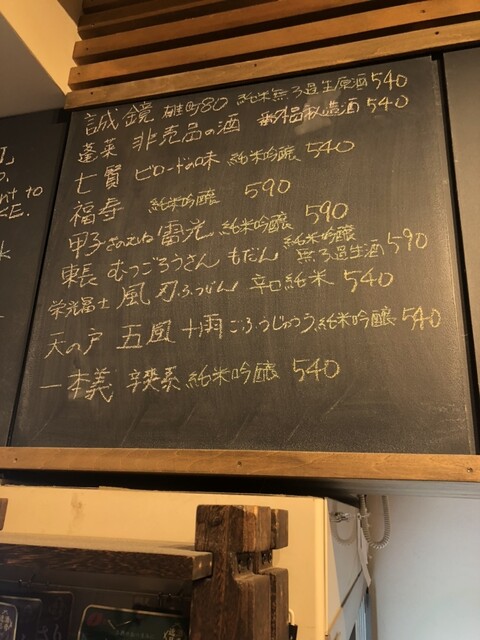 誠鏡 雄町80 純米無ろ過生原酒 540
蓬莱 非売品の酒 番外品秘造酒 540
七賢 ビロードの味 純米吟醸 540
福寿 純米吟醸 590
甲子きのえね 雷光 純米吟醸 590
東長 むつごろうさん もだん 純米吟醸
無ろ過生酒 590
栄光冨士 風刃ふうじん 辛口純米 540
天の戸 五風十雨ごふうじゅうう 純米吟醸 540
一本義 辛爽系 純米吟醸 540
nt to
KE.